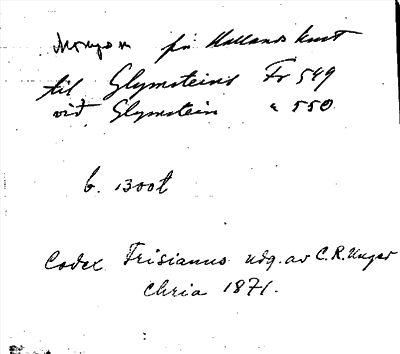 på Hallands kust
til Glymsteins Fr 549
við Glymstein " 550
b. 1300t
Codex Frisianus udg. av C.R. Unger
Chria 1871.